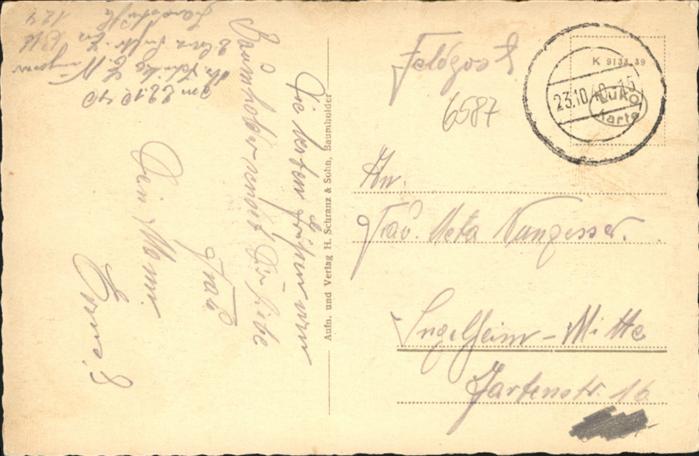 Feldpost
6587
K 9133.39
23.10.40.-15
Luko
karte
An.
Frau. Meta Nungesser.
Ingelheim-Mitte
Gartenstr. 16
Aufn. und Verlag H. Schranz & Sohn, Baumholder
Die besten Grüße von
Baumholder sendet Dir liebe
Frau
Dein Mann.
am 22.10.40